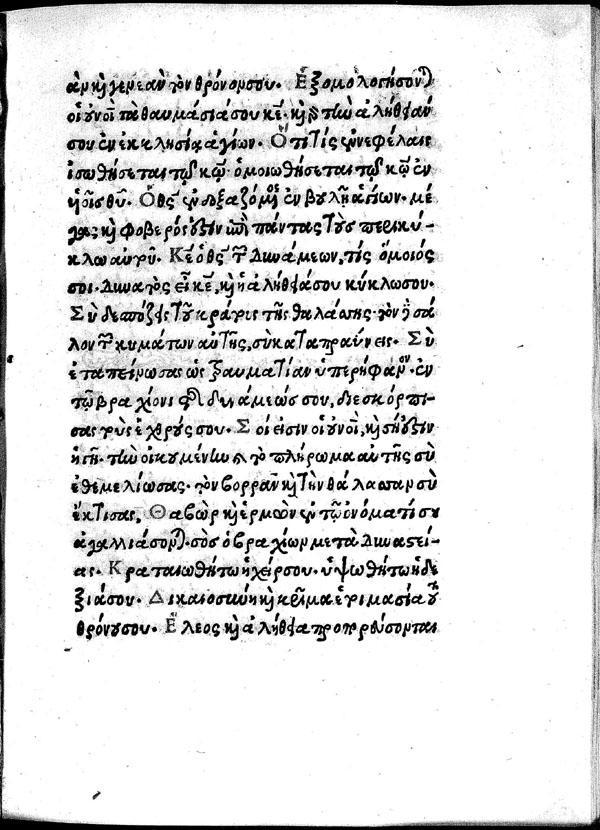 ὰν καὶ γενεὰν τὸν θρόνον σου. Ἐξομολογήσον)
οἱ οὐνοὶ τὰ θαυμάσιά σου κε̄. καὶ γ τὴν ἀλήθειάν
σου ἐν ἐκκλησίᾳ ἁγίων. Ὅτι τίς ἐν νεφέλαις
ἰσωθήσεται τῷ κῷ. ὁμοιωθήσεται τῷ κῷ ἐν
υἱοῖς θῦ. Ὁ θς̄ ἐνδοξαζόμενος ἐν βουλῇ ἁγίων. μέ
γας καὶ φοβερός ἐστιν ἐπὶ πάντας τοὺς περικύ-
κλῳ αὐτοῦ. Κε̄ ὁ θς̄ τῶν δυνάμεων, τίς ὅμοιός
σοι. δυνατὸς εἶ κε̄, καὶ ἡ ἀλήθειά σου κύκλῳ σου.
Σὺ δεσπόζεις τοῦ κράτους τῆς θαλάσσης. τὸν δὲ σά
λον τῶν κυμάτων αὐτῆς, σὺ καταπραΰνεις. Σὺ
ἐταπείνωσας ὡς τραυματίαν ὑπερήφανον. ἐν
τῷ βραχίονι τῆς δυνάμεώς σου, διεσκόρπι-
σας τοὺς ἐχθρούς σου. Σοί εἰσιν οἱ οὐνοὶ, καὶ σή ἐστιν
ἡ γῆ. τὴν οἰκουμένην καὶ τὸ πλήρωμα αὐτῆς σὺ
ἐθεμελίωσας. τὸν βορρᾶν καὶ τὴν θάλασσαν σὺ
ἔκτισας, Θαβὼρ καὶ ἑρμὼν ἐν τῷ ὀνόματί σου
ἀγαλλιάσον). σὸς ὁ βραχίων μετὰ δυναστεί-
ας. Κραταιωθήτω ἡ χείρ σου. ὑψωθήτω ἡ δε
ξιά σου. Δικαιοσύνη καὶ κρῖμα ἑτοιμασία τοῦ
θρόνου σου. Ἔλεος καὶ ἀλήθεια προπορεύσονται